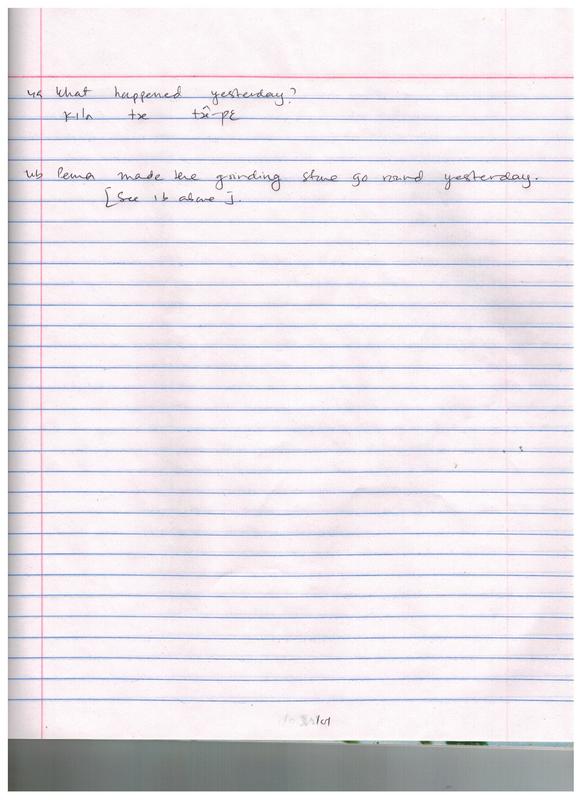 4a What happened yesterday?
kıla tɤe tɤ̂-pɛ
4b Pema made the grinding stone go round yesterday.
[See 1b above].